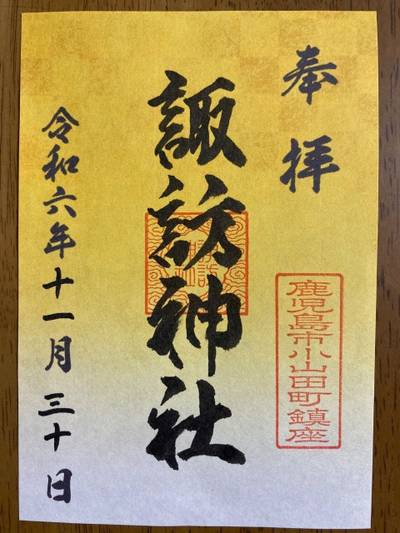 奉拝
鹿児島市小山田町鎮座
諏訪神社
令和六年十一月三十日